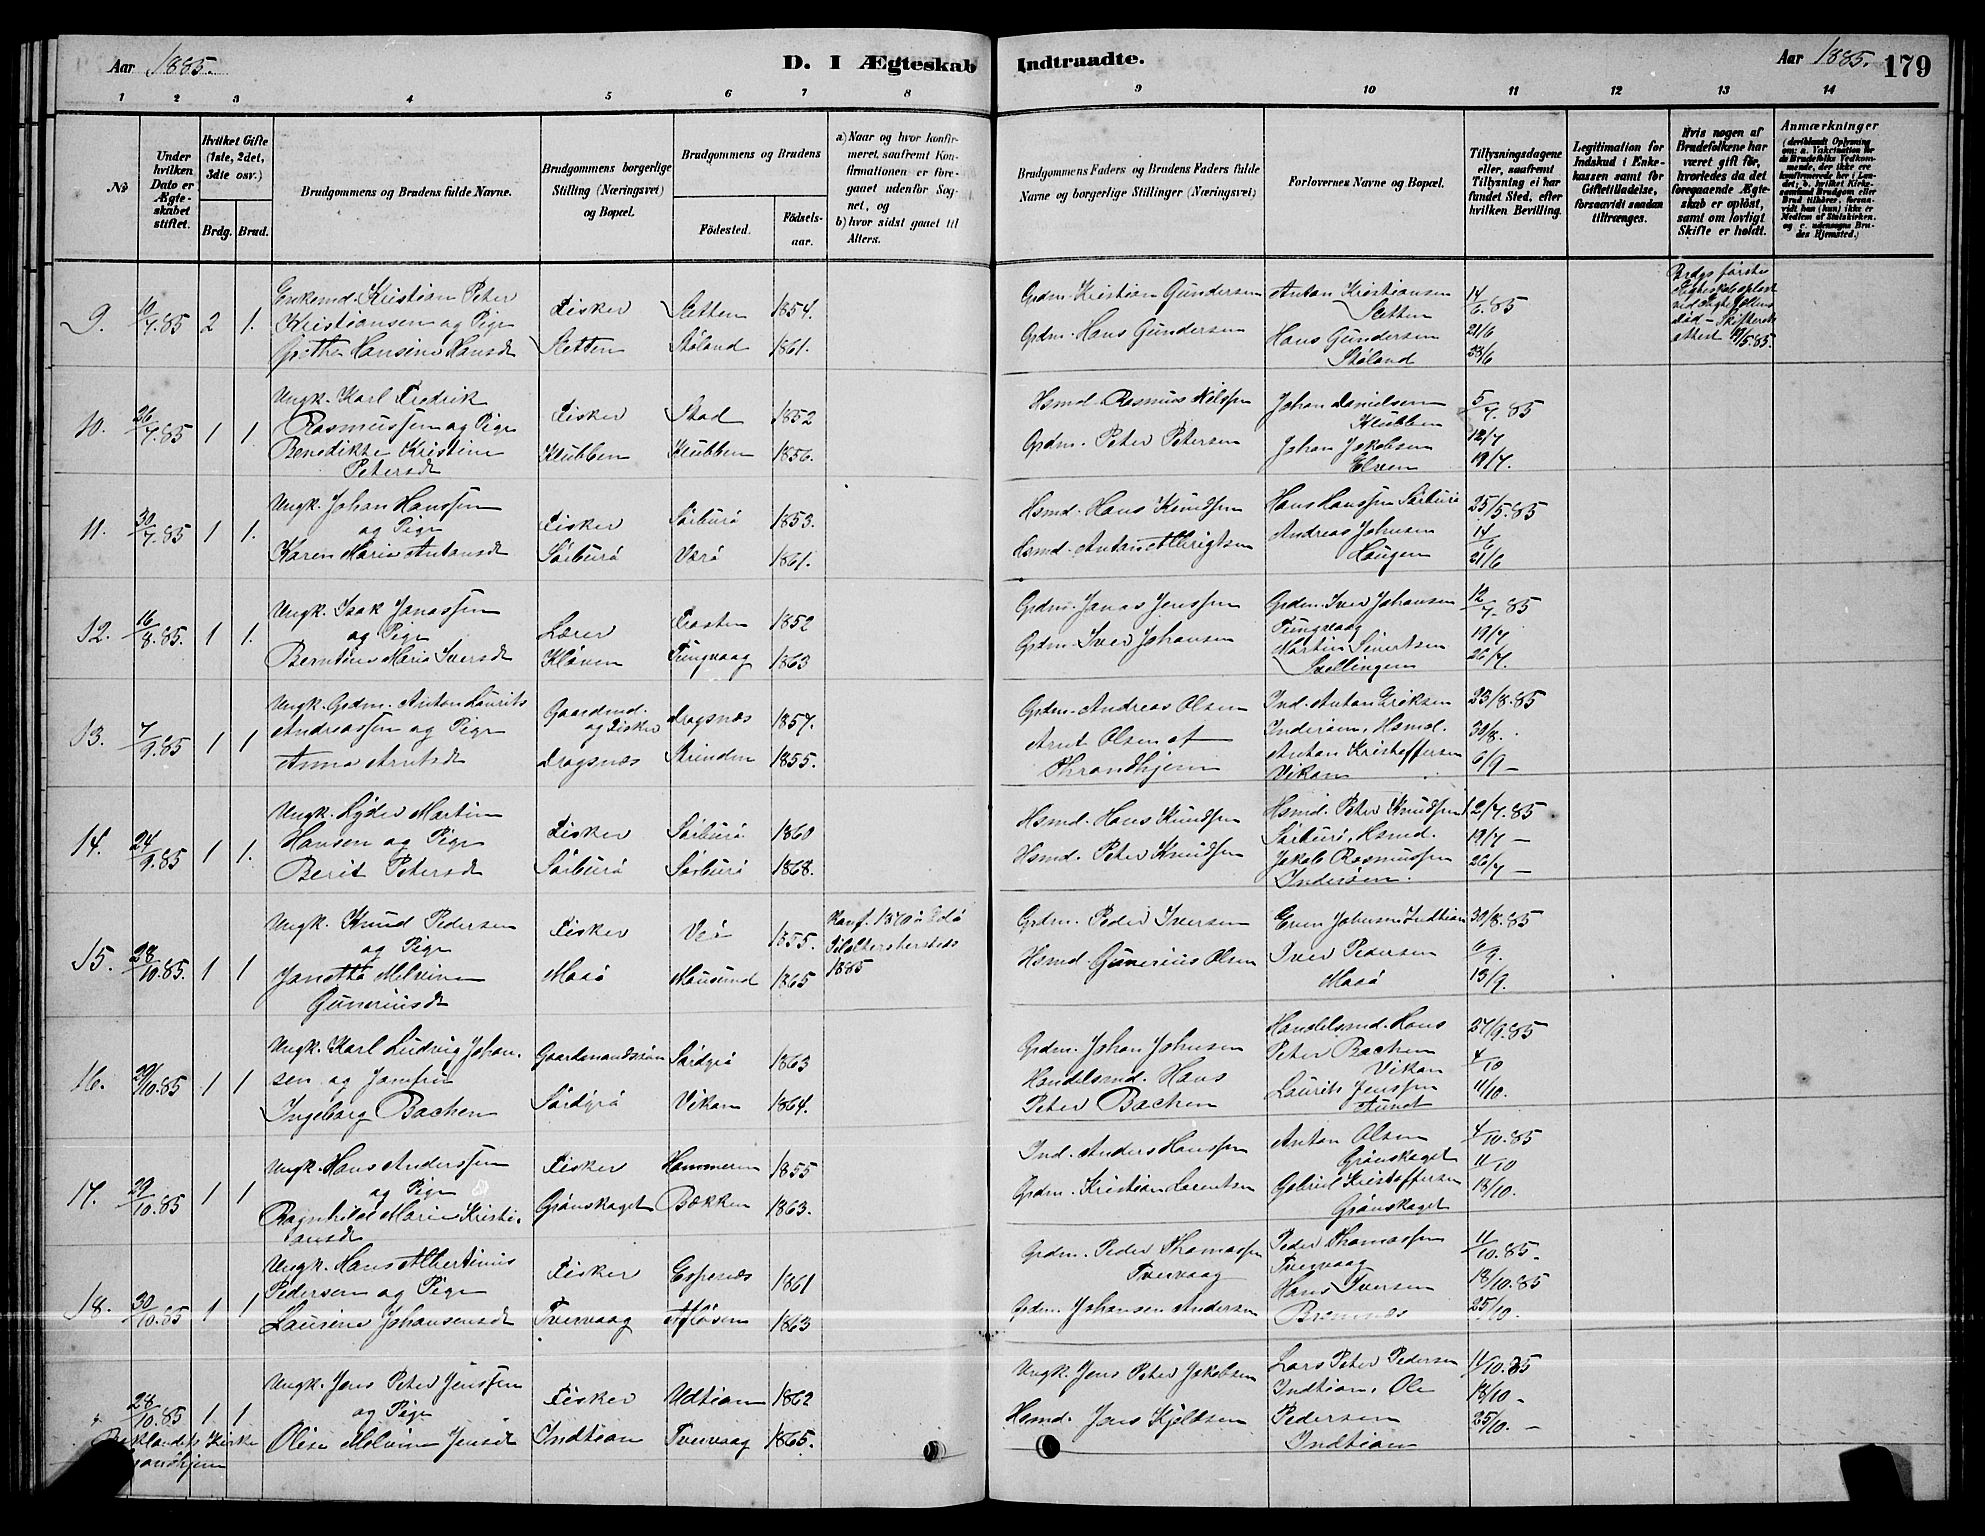 Aar 1885.
D. I Ægteskab Indtraadte.
Aar 1885.
179
1 2 3 4 5 6 7 8 9 10 11 12 13 14
No
Under hvilken Dato er Ægteskabet stiftet.
Hvilket Gifte (1ste, 2det, 3die osv.)
Brdg. Brud.
Brudgommens og Brudens fulde Navne.
Brudgommens borgerlige Stilling (Næringsvei) og Bopæl.
Brudgommens og Brudens
Födested.
Födselsaar.
a) Naar og hvor konfirmeret, saafremt Konfirmationen er foregaaet udenfor Sognet, og
b) hvor sidst gaaet til Alters.
Brudgommens Faders og Brudens Faders fulde Navne og borgerlige Stillinger (Næringsvei)
Forlovernes Navne og Bopæl.
Tillysningsdagene eller, saafremt Tillysning ei har fundet Sted, efter hvilken Bevilling.
Legitimation for Indskud i Enkekassen samt for Giftetilladelse, forsaavidt saadan tiltrænges.
Hvis nogen af Brudefolkene har været gift för, hvorledes da det foregaaende Ægteskab er oplöst, samt om lovligt Skifte er holdt.
Anmærkninger
9. 10/7.85 2 1.
Enkemd. Kristian Peter
Kristiansen og Pige
Hansine Hansd
Fisker
Sletten
Sletten 1854.
Stöland 1861.
Grdm. Kristian Gundersen
Grdm. Hans Gundersen
Anton Kristiansen
Sletten
Hans Gundersen
Stöland
14/6.85
21/6
28/6
Brdgs förste
död - Skifteret
attest 19/5.85.
10. 26/7.85 1 1.
Ungk. Karl Fredrik
Rasmussen og Pige
Benedikte Kristine
Petersd
Fisker
Klubben
Stad 1852
Klubben 1856.
Hsmd. Rasmus Nilssen
Grdm. Peter Petersen
Johan Danielsen
Klubben
Johan Jakobsen
Elven
5/7.85
12/7
19/7.
11. 30/7.85 1 1.
Ungk. Johan Hanssen
og Pige
Karen Marie Antonsd
Fisker
Sörburö
Sörburö 1853.
Værö 1861.
Hsmd. Hans Knudsen
Hsmd. Anton Albrigtsen
Hans Hanssen Sörburö
Andreas Johnsen
Haugen
25/5.85
14/6
21/6
12. 16/8.85. 1 1.
Ungk. Isak Jonassen
og Pige
Berntine Marie Iversd
Lærer
Klöven
Frosten 1852
Tungvaag 1863
Grdm. Jonas Jenssen
Grdm. Iver Johansen
Grdm. Iver Johansen
Tungvaag
Martin Sivertsen
Svellingen
12/7.85
19/7
26/7.
13. 7/9.85 1 1
Ungk. Grdm. Anton Laurits
Andreassen og Pige
Anna Arntsd
Gaardmd.
og Fisker
Dragsnæs
Dragsnæs 1857.
Strinden 1855.
Grdm. Andreas Olsen
Arnt Olsen af
Throndhjem
Ind. Anton Eriksen
Inderöen, Hsmd.
Anton Kristoffersen
Vikan
23/8.85
30/8.
6/9 -
14. 24/9.85 1 1.
Ungk. Lyder Martin
Hansen og Pige
Berit Petersd
Fisker
Sörburö
Sörburö 1860
Sörburö 1868.
Hsmd. Hans Knudsen
Hsmd. Peter Knudsen
Hsmd. Peter Knudsen
Sörburö, Hsmd.
Jakob Rasmussen
Inderöen.
12/7.85
19/7 -
26/7 -
15. 28/10.85. 1 1
Ungk. Knud Pedersen
og Pige
Janetta Melvine
Guneriusd
Fisker
Masö
1855.
Mausund 1865
1885
Grdm. Peder Iversen
Hsmd. Gunerius Olsen
Even Johnsen Indtian
Iver Pedersen
Masö
30/8.85
6/9.
13/9.
16. 29/10.85 1 1
Ungk. Karl Ludvig Johan-
sen og Jomfru
Ingeborg Bachen
Gaardmandssön
Sördyrö
Sördyrö 1863
Vikan 1864.
Grdm. Johan Johnsen
Handelsmd. Hans
Peter Bachen
Handelsmd. Hans
Peter Bachen
Vikan
Laurits Jenssen
Aunet
27/9.85
4/10
11/10.
17. 29/10.85 1 1
Ungk. Hans Anderssen
og Pige
Ragnhilde Marie Kristi-
ansd
Fisker
Grönskaget
Hammeren 1855
Bækken 1863.
Ind. Anders Hanssen
Grdm. Kristian Larentsen
Anton Olsen
Grönskaget
Gabriel Kristoffersen
Grönskaget
4/10.85
11/10
18/10.
18. 30/10.85 1 1
Ungk. Hans Albertinus
Pedersen og Pige
Laurine Johansensd
Fisker
Tvervaag
Espenæs 1861
Aflösen 1863
Grdm. Peder Thomassen
Tvervaag
Grdm. Johansen Andersen
Peder Thomassen
Tvervaag
Hans Iversen
Bremnæs
11/10.85-
18/10.85
25/10.
28/10.85 1 1
Kirke
Ungk. Jens Peter Jenssen
og Pige
Olise Melvine Jensd
Fisker
Indtian
Udtian 1862
Tvervaag 1865.
Ungk. Jens Peter Jakobsen
Hsmd. Jens Kjeldsen
Lars Peter Pedersen
Indtian, Ole
Pedersen
Indtian
11/10.85
18/10 -
25/10. -